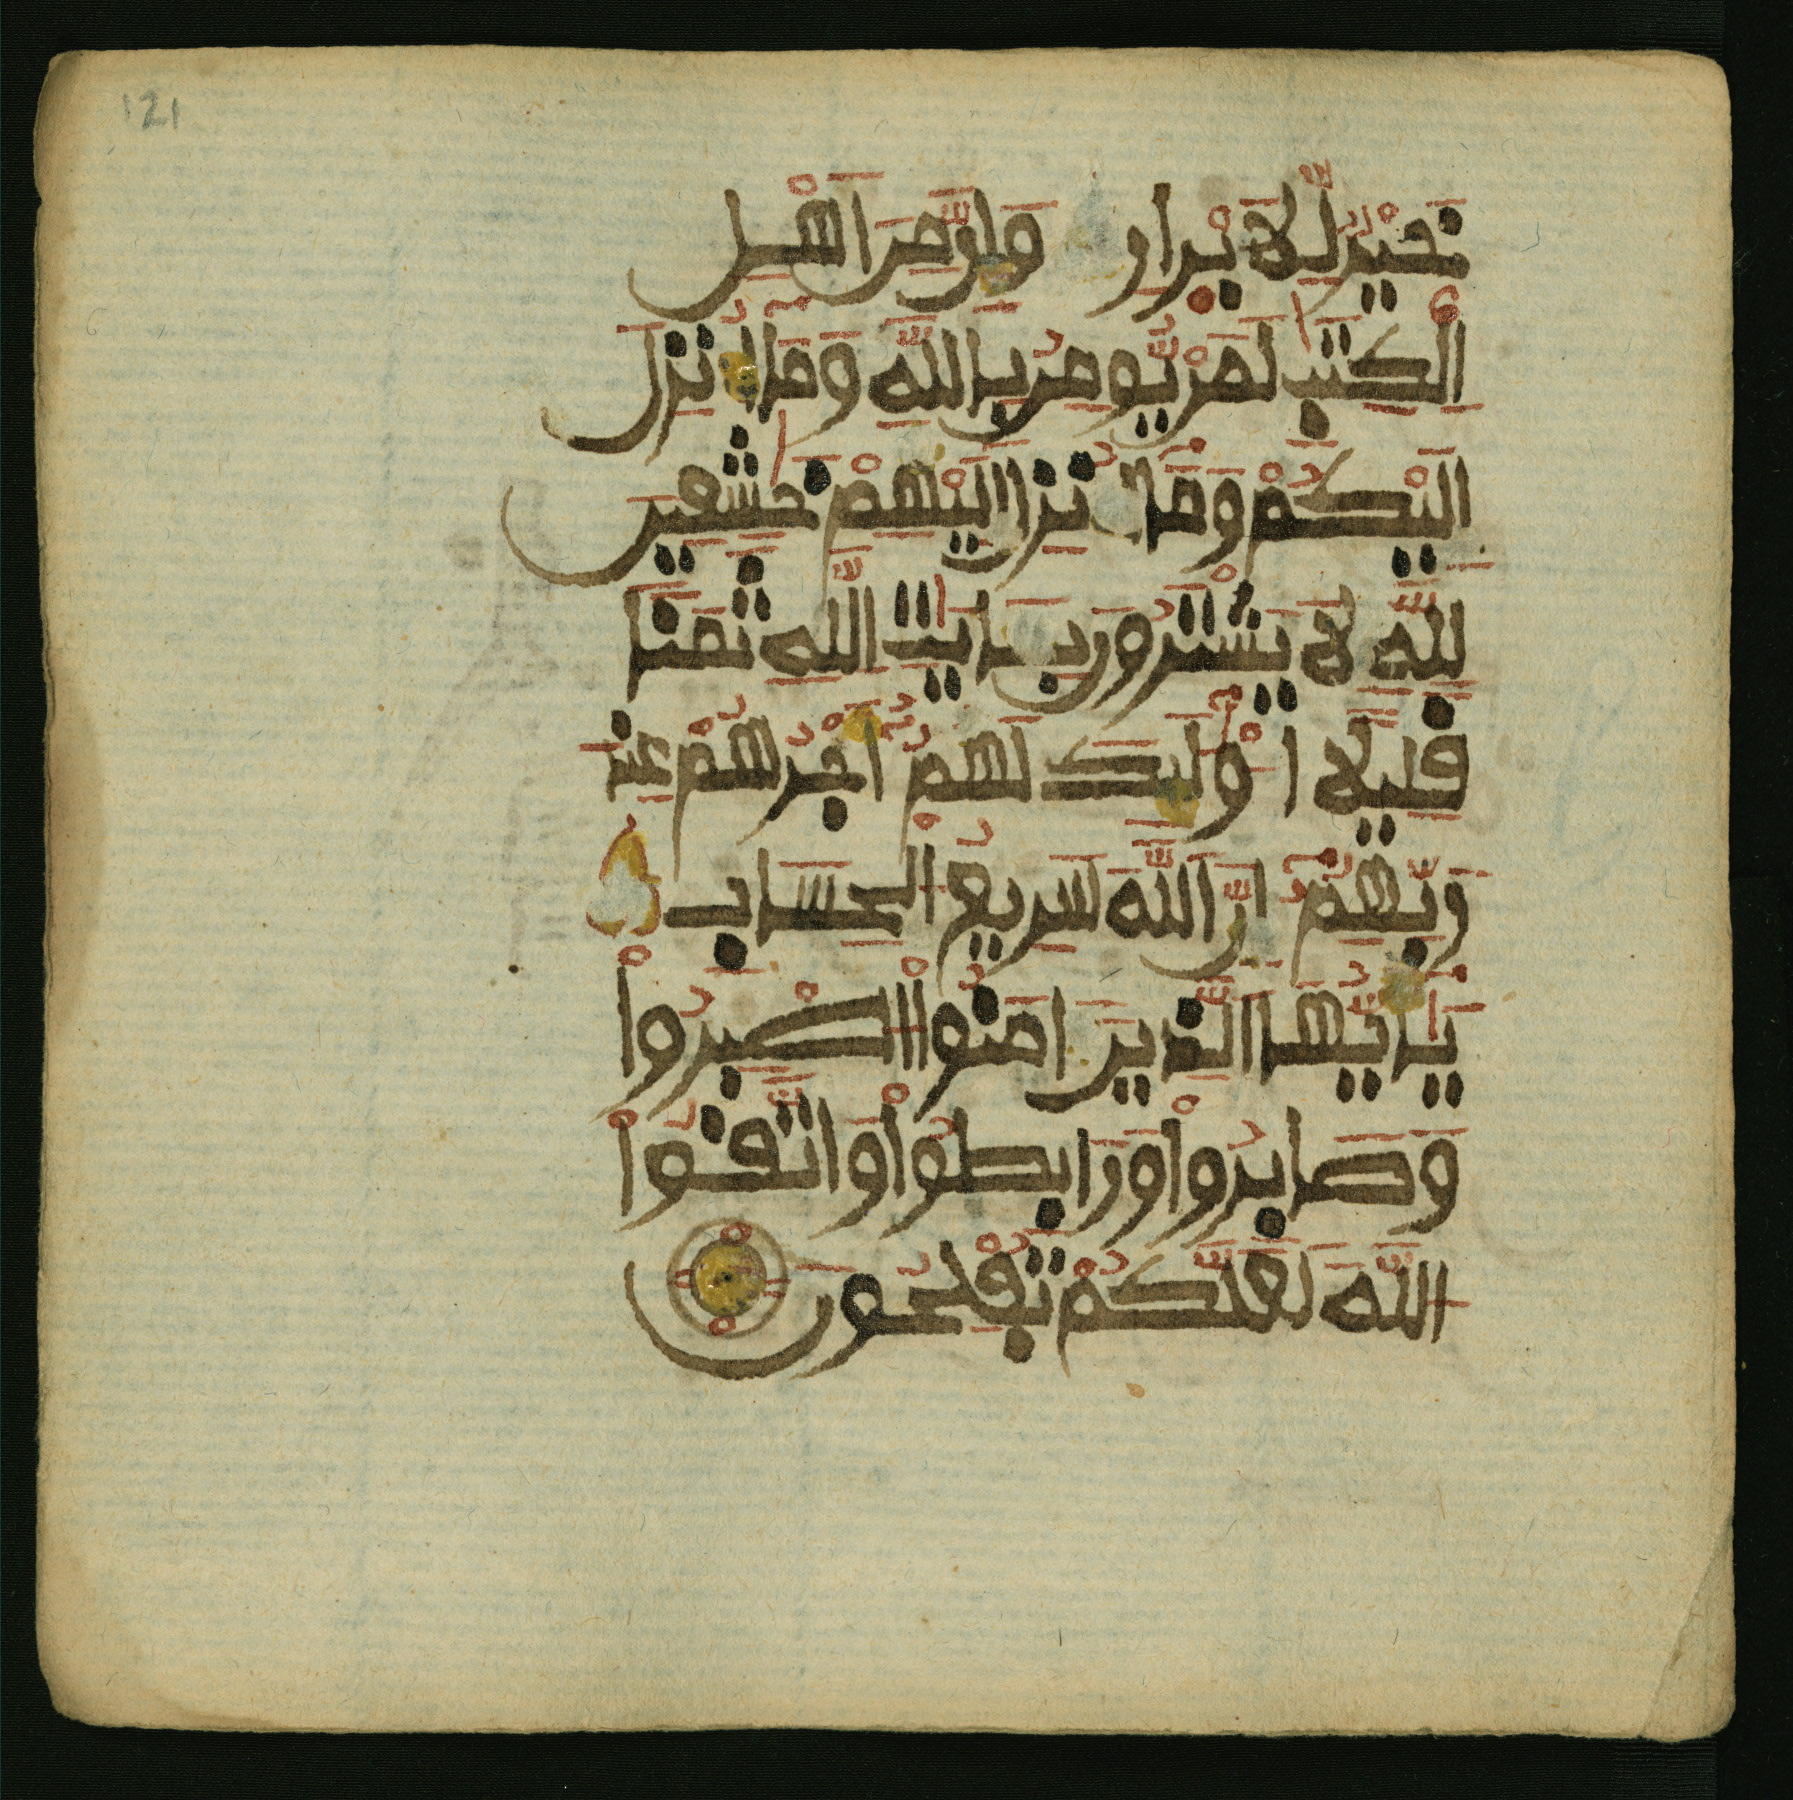 121
خَيْرٌ لِّلَابْرَارِ وَإِنَّ مِنَ اَهْلِ
اِ۬لْكِتَٰبِ لَمَنْ يُّومِنُ بِاللَّهِ وَمَا أُنزِلَ
إِلَيْكُمْ وَمَا أُنزِلَ إِلَيْهِمْ خَٰشِعِينَ
لِلَّهِ لَا يَشْتَرُونَ بِـَٔايَٰتِ اِ۬للَّهِ ثَمَناً
قَلِيلاً اُوْلَٰٓئِكَ لَهُمُۥٓ أَجْرُهُمْ عِندَ
رَبِّهِمُۥٓ إِنَّ اَ۬للَّهَ سَرِيعُ اُ۬لْحِسَابِ
يَٰٓأَيُّهَا اَ۬لذِينَ ءَامَنُوا اُ۪صْبِرُواْ
وَصَابِرُواْ وَرَابِطُواْ وَاتَّقُواْ
اُ۬للَّهَ لَعَلَّكُمْ تُفْلِحُونَ